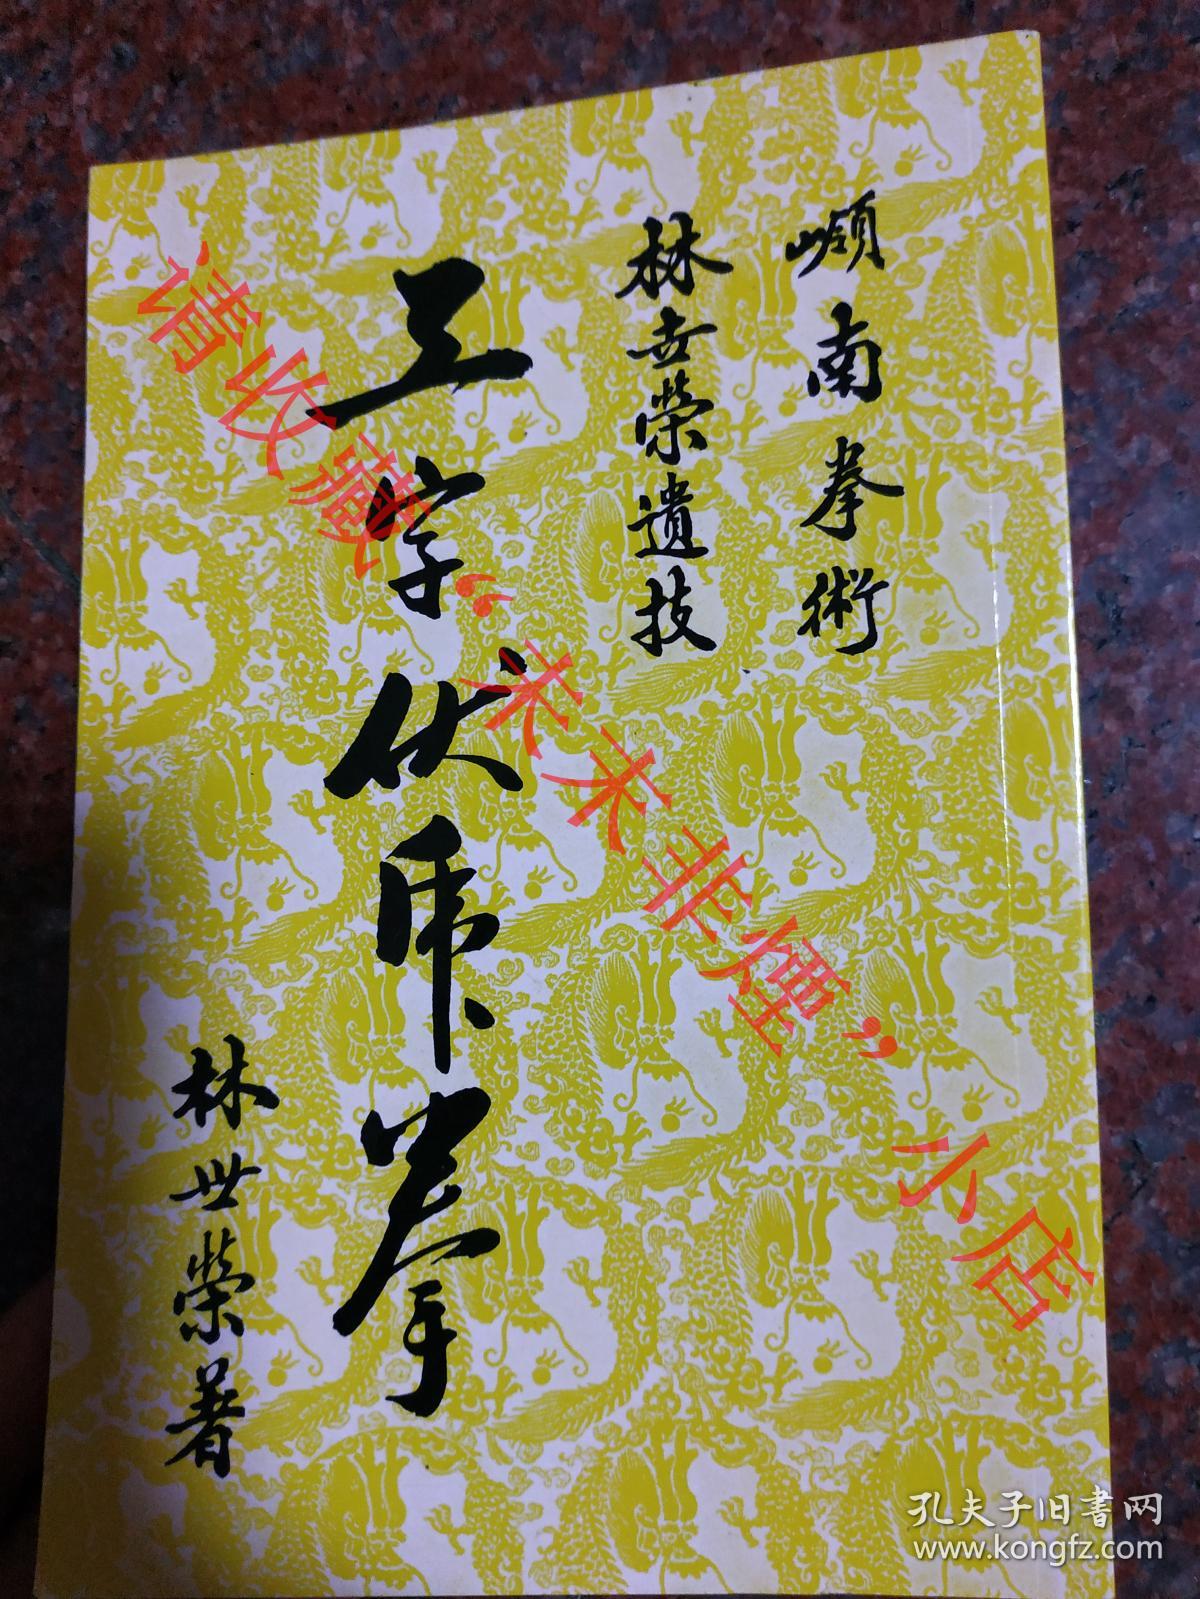 嶺南拳術
林世榮遺技
工字伏虎拳
林世榮著
请收藏“未末非煙”小店
孔夫子旧書网
www.kongfz.com